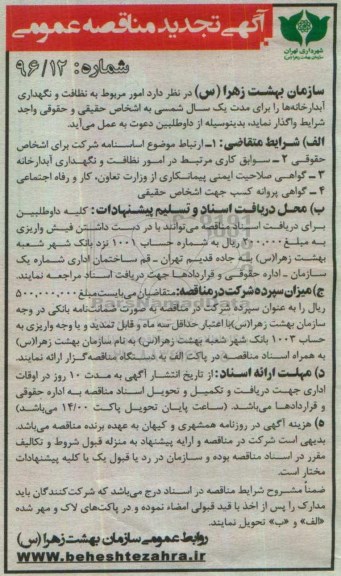 آگهی تجدید مناقصه عمومی
شهرداری تهران
سازمان بهشت زهرا (س)
شماره: ۹۶/۱۲
سازمان بهشت زهرا (س) در نظر دارد امور مربوط به نظافت و نگهداری
آبدارخانه‌ها را برای مدت یک سال شمسی به اشخاص حقیقی و حقوقی واجد
شرایط واگذار نماید، بدینوسیله از داوطلبین دعوت به عمل می‌آید.
الف) شرایط متقاضی: ۱ـ ارتباط موضوع اساسنامه شرکت برای اشخاص
حقوقی ۲ـ سوابق کاری مرتبط در امور نظافت و نگهداری آبدارخانه
۳ ـ گواهی صلاحیت ایمنی پیمانکاری از وزارت تعاون، کار و رفاه اجتماعی
۴ ـ گواهی پروانه کسب جهت اشخاص حقیقی
ب) محل دریافت اسناد و تسلیم پیشنهادات: کلیه داوطلبین
برای دریافت اسناد مناقصه می‌توانند با در دست داشتن فیش واریزی
به مبلغ ۲۰۰,۰۰۰ ریال به شماره حساب ۱۰۰۱ نزد بانک شهر شعبه
بهشت زهرا(س) به جاده قدیم تهران ـ قم ساختمان اداری شماره یک
سازمان ـ اداره حقوقی و قراردادها جهت دریافت اسناد مراجعه نمایند.
ج) میزان سپرده شرکت در مناقصه: متقاضیان می‌بایست مبلغ ۵۰۰,۰۰۰,۰۰۰
ریال را به عنوان سپرده شرکت در مناقصه به صورت ضمانت‌نامه بانکی در وجه
سازمان بهشت زهرا(س) با اعتبار حداقل سه ماه و قابل تمدید و یا وجه واریزی به
حساب ۱۰۰۳ بانک شهر شعبه بهشت زهرا(س) به نام سازمان بهشت زهرا(س)
به همراه اسناد مناقصه در پاکت الف به دستگاه مناقصه‌گزار ارائه نمایند.
د) مهلت ارائه اسناد: از تاریخ انتشار آگهی به مدت ۱۰ روز در اوقات
اداری جهت دریافت و تکمیل و تحویل اسناد مناقصه به اداره حقوقی
و قراردادها می‌باشد. (ساعت پایان تحویل پاکت ۱۴/۰۰ می‌باشد)
۵) هزینه آگهی در روزنامه همشهری و کیهان به عهده برنده مناقصه می‌باشد.
بدیهی است شرکت در مناقصه و ارایه پیشنهاد به منزله قبول شروط و تکالیف
مقرر در اسناد مناقصه بوده و سازمان در رد یا قبول یک یا کلیه پیشنهادات
مختار است.
ضمناً مشروح شرایط مناقصه در اسناد درج می‌باشد که شرکت‌کنندگان باید
مدارک را پس از اخذ با قید قبولی امضاء نموده و در پاکت‌های لاک و مهر شده
«الف» و «ب» تحویل نمایند.
روابط عمومی سازمان بهشت زهرا (س)
www.beheshtezahra.ir